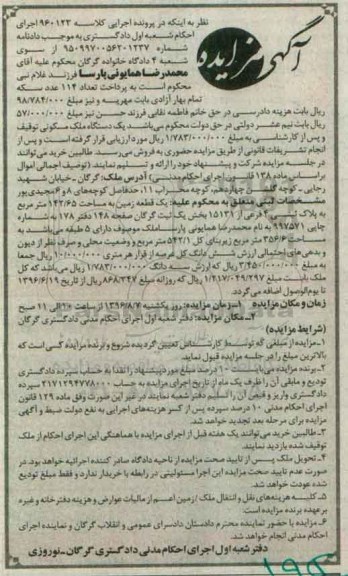 آگهی مزایده
نظر به اینکه در پرونده اجرایی کلاسه ۹۶۰۱۲۳ اجرای
احکام شعبه اول دادگستری به موجب دادنامه
شماره ۹۵۰۹۹۷۰۰۵۶۲۰۱۲۳۷ از سوی
شعبه ۴ دادگاه خانواده گرگان محکوم علیه آقای
محمدرضا همایونی پارسا فرزند غلام نبی
محکوم است به پرداخت تعداد ۱۱۴ عدد سکه
تمام بهار آزادی بابت مهریه و نیز مبلغ ۹۸/۷۸۴/۰۰۰
ریال بابت هزینه دادرسی در حق خانم فاطمه نقابی فرزند حسن نیز مبلغ ۵۷/۰۰۰/۰۰۰
ریال بابت نیم عشر دولتی در حق دولت محکوم می‌باشد. یک دستگاه ملک مسکونی توقیف
و پس از کارشناسی به مبلغ ۱/۷۸۳/۰۰۰/۰۰۰ ریال مورد ارزیابی قرار گرفته است و پس از
انجام تشریفات قانونی از طریق مزایده حضوری به فروش می‌رسد. طالبین خرید می‌توانند
در جلسه مزایده شرکت و پیشنهاد خود را ارائه و تسلیم نمایند. (توصیف اجمالی اموال
براساس ماده ۱۳۸ قانون اجرای احکام مدنی) آدرس ملک: گرگان ـ خیابان شهید
رجایی ـ کوچه گلشن چهاردهم، کوچه محراب ۱۱، حدفاصل کوچه‌های ۸ و ۶ مجیدی پور
مشخصات ثبتی متعلق به محکوم علیه: یک قطعه زمین به مساحت ۱۴۲/۶۵ متر مربع
به پلاک ثبتی ۴ فرعی از ۱۵۱۳۱ بخش یک ثبت گرگان صفحه ۱۴۸ دفتر ۱۷۸ به شماره
چاپی ۹۹۷۵۷۱ به نام محمدرضا همایونی پارسا، ملک موصوف دارای ۵ طبقه می‌باشد به
مساحت ۳۵۶/۶ متر مربع زیربنای کل ۵۴۲/۱ متر مربع و وضعیت محلی و صرف نظر از دیون
و بدهی‌های احتمالی ارزش شش دانگ کل عرصه از قرار هر متری ۱۰/۰۰۰/۰۰۰ ریال جمعا
به مبلغ ۳/۴۵۰/۰۰۰/۰۰۰ ریال که ارزش سه دانگ ۱/۷۸۳/۰۰۰/۰۰۰ ریال می‌باشد که کل
ملک بابت مبلغ ۱/۲۱۷/۰۳۹/۲۹۷ ریال که روزانه مبلغ ۸۶۸/۳۴۷ ریال از تاریخ ۱۳۹۶/۶/۱۹
تا یوم‌الوصول اضافه می‌گردد.
زمان و مکان مزایده ۱ـ زمان مزایده: روز یکشنبه ۱۳۹۶/۸/۷ از ساعت ۱۰ الی ۱۱ صبح
۲ـ مکان مزایده: دفتر شعبه اول اجرای احکام مدنی دادگستری گرگان
(شرایط مزایده)
۱ـ مزایده از مبلغی که توسط کارشناس تعیین گردیده شروع و برنده مزایده کسی است که
بالاترین مبلغ را در جلسه مزایده قبول نماید.
۲ـ برنده مزایده می‌بایست ۱۰ درصد مبلغ مورد پیشنهاد را نقدا به حساب سپرده دادگستری
تودیع و مابقی آن را ظرف یک ماه از تاریخ اجرای مزایده به حساب ۲۱۷۱۲۹۴۷۷۸۰۰۰ سپرده
دادگستری واریز و قبض آن را تسلیم دفتر شعبه نمایند در غیر این صورت وفق ماده ۱۲۹ قانون
اجرای احکام مدنی ۱۰ درصد سپرده پس از کسر هزینه‌های اجرایی به نفع دولت ضبط و آگهی
مزایده برای مرحله بعد تجدید خواهد شد.
۳ـ طالبین خرید می‌توانند یک هفته قبل از اجرای مزایده با هماهنگی این اجرای احکام از ملک
توقیف شده بازدید نمایند.
۴ـ تحویل ملک پس از تایید صحت مزایده از ناحیه دادگاه صادر کننده اجرائیه خواهد بود. در
صورت عدم تایید صحت مزایده این اجرا مسئولیتی در رابطه با خریدار ندارد و فقط مبلغ تودیع
شده عودت خواهد شد.
۵ـ کلیه هزینه‌های نقل و انتقال ملک / زمین اعم از مالیات عوارض و هزینه دفترخانه و غیره
بر عهده برنده مزایده است.
۶ـ مزایده با حضور نماینده محترم دادستان دادسرای عمومی و انقلاب گرگان و نماینده اجرای
احکام مدنی انجام خواهد شد.
دفتر شعبه اول اجرای احکام مدنی دادگستری گرگان ـ نوروزی